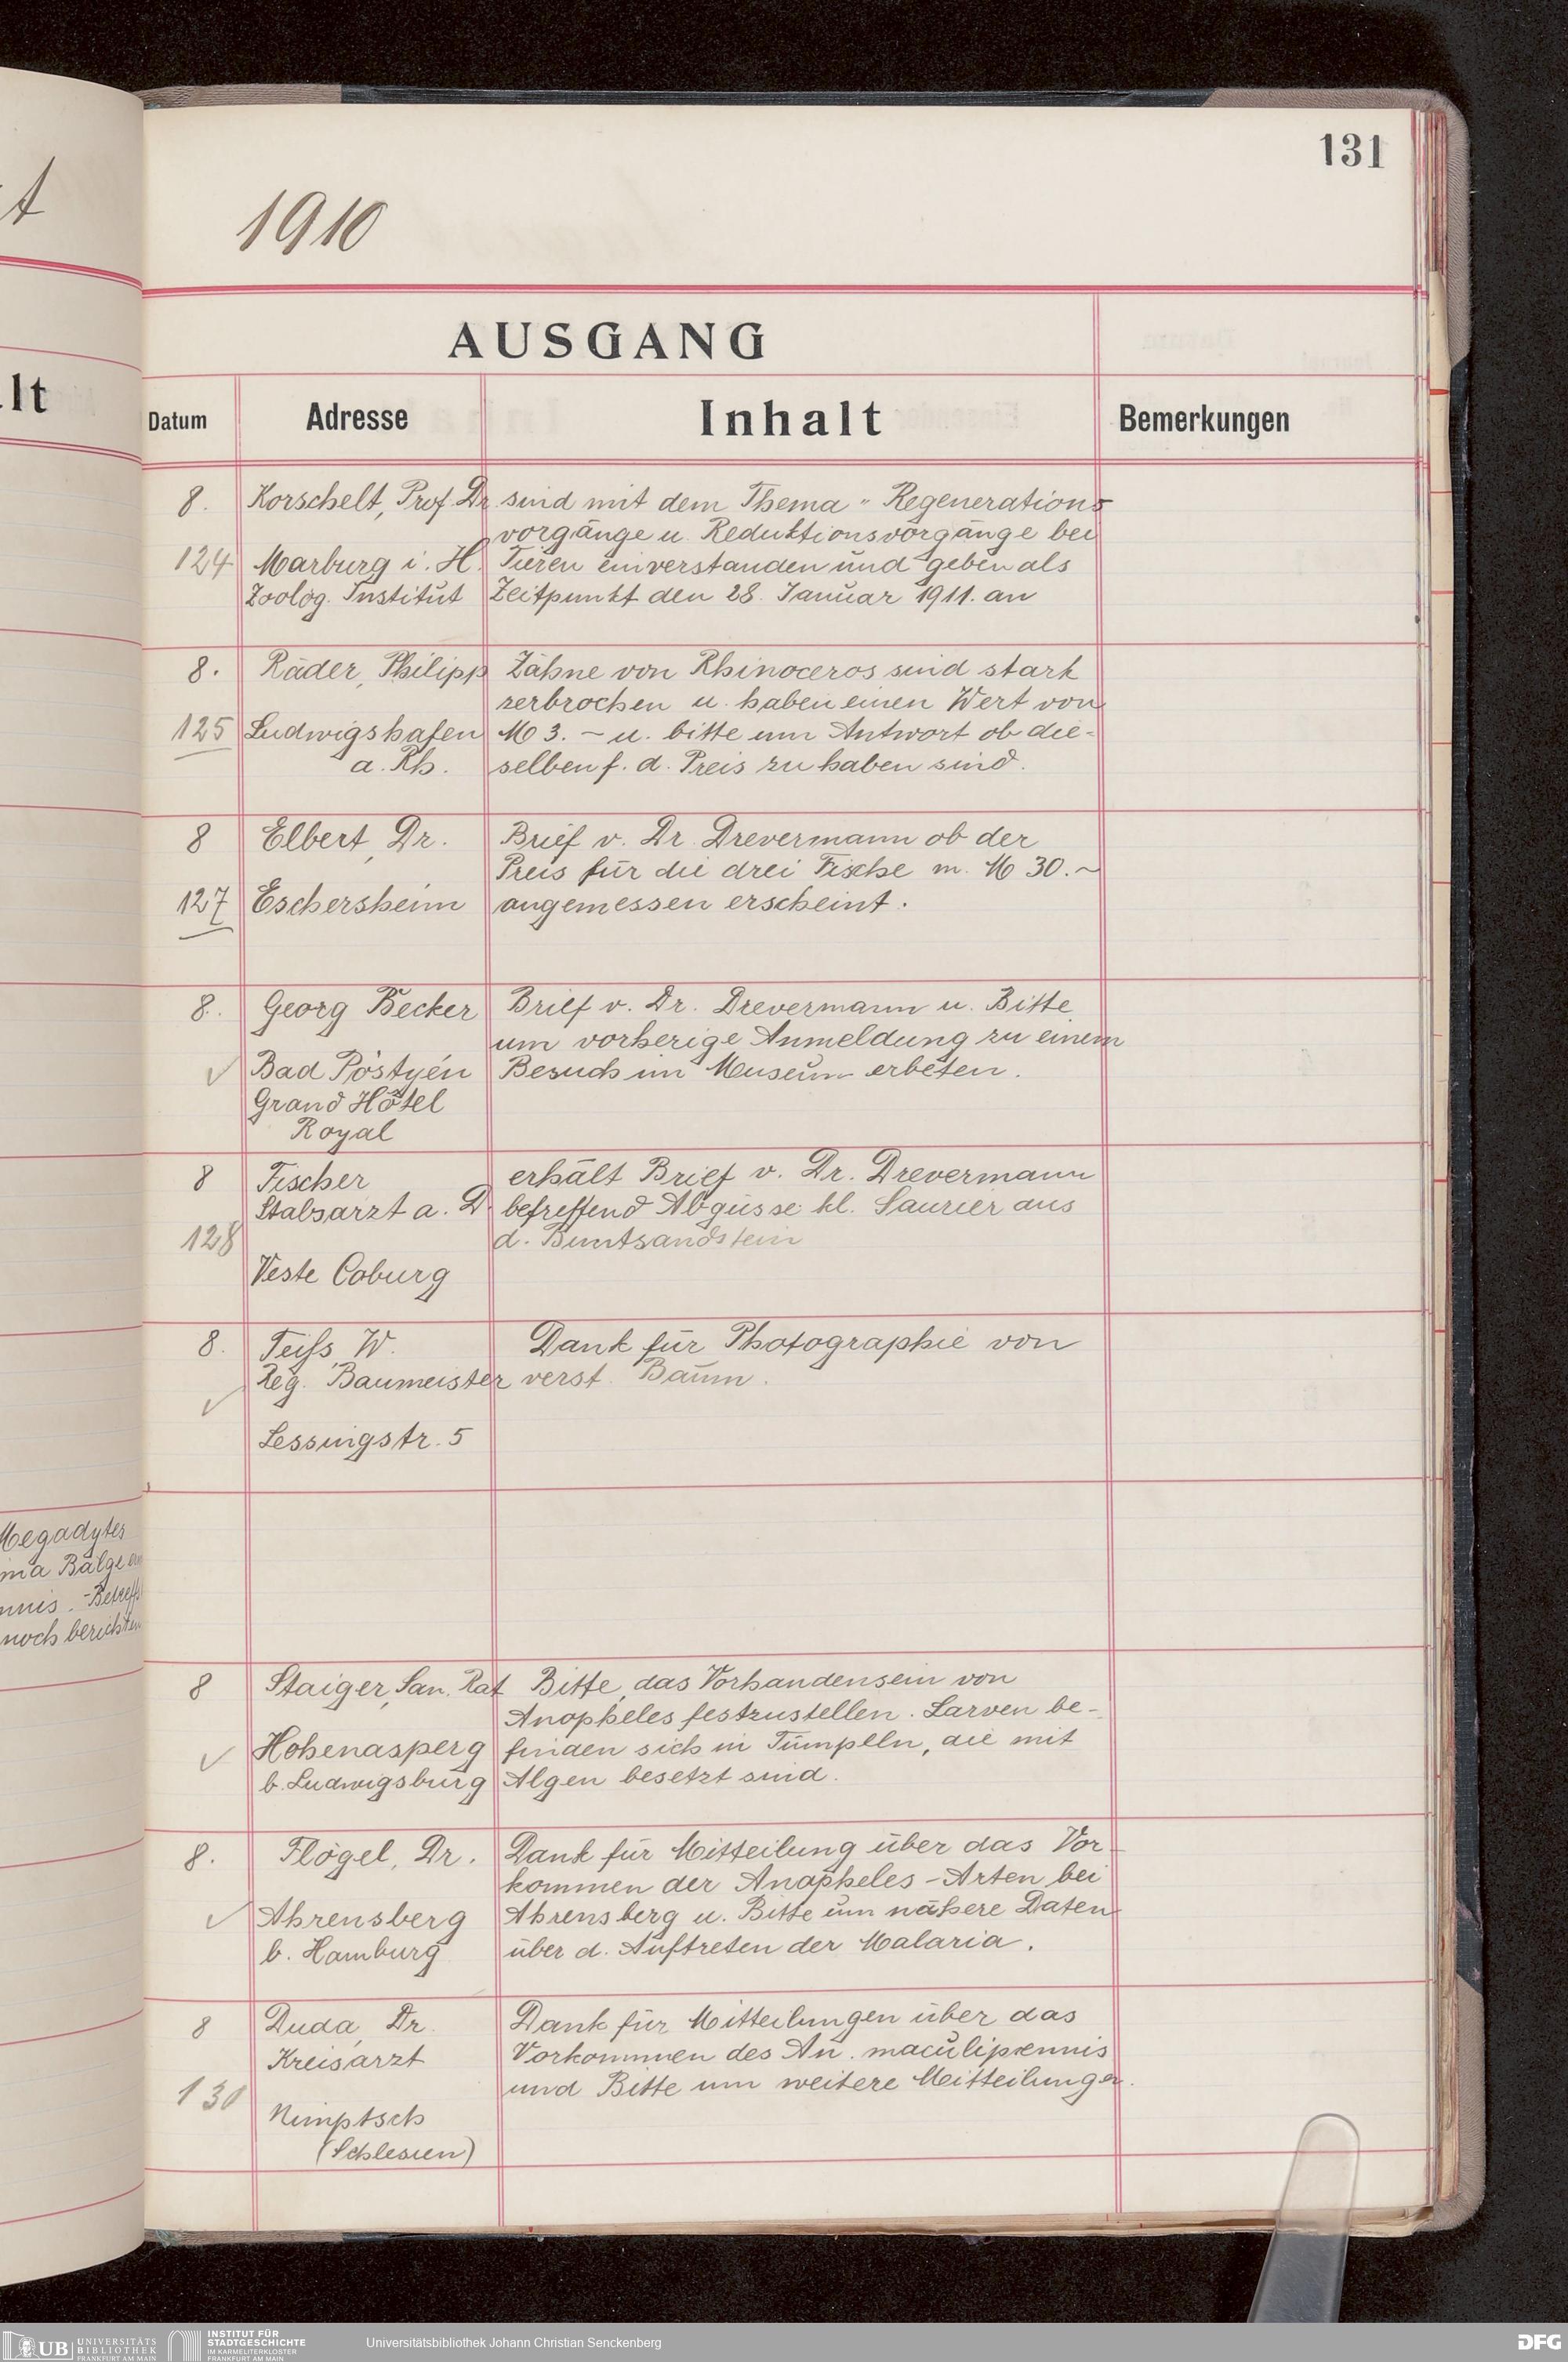 131
1910
AUSGANG
Datum Adresse Inhalt Bemerkungen
8. Korschelt, Prof. Dr. sind mit dem Thema „ Regenerations
vorgänge u. Reduktionsvorgänge bei
124 Marburg i. H. Tieren einverstanden und geben als
Zoolog. Institut Zeitpunkt den 28. Januar 1911. an
8. Räder, Philipp Zähne von Rhinoceros sind stark
zerbrochen u. haben einen Wert von
125 Ludwigshafen M 3. – u. bitte um Antwort ob die-
a. Rh. selben f. d. Preis zu haben sind.
8 Elbert, Dr. Brief v. Dr. Drevermann ob der
Preis für die drei Fische m. M 30. –
127 Eschersheim angemessen erscheint.
8. Georg Becker Brief v. Dr. Drevermann u. Bitte
um vorherige Anmeldung zu einem
✓ Bad Pöstyén Besuch im Museum erbeten.
Grand Hôtel
Royal
8 Fischer erhält Brief v. Dr. Drevermann
Stabsarzt a. D. betreffend Abgüsse kl. Saurier aus
128 d. Buntsandstein
Veste Coburg
8. Teiß, W. Dank für Photographie von
Reg. Baumeister verst. Baum.
✓
Lessingstr. 5
Megadytes
ma Bälge
nnis. - Betreff
noch berichten
8 Staiger, San. Rat Bitte, das Vorhandensein von
Anopheles festzustellen. Larven be-
✓ Hohenasperg finden sich in Tümpeln, die mit
b. Ludwigsburg Algen besetzt sind.
8. Flögel, Dr. Dank für Mitteilung über das Vor-
kommen der Anopheles - Arten bei
✓ Ahrensberg Ahrensberg u. Bitte um nähere Daten
b. Hamburg über d. Auftreten der Malaria.
8 Duda, Dr. Dank für Mitteilungen über das
Kreisarzt Vorkommen des An. maculipennis
130 und Bitte um weitere Mitteilungen.
Nimptsch
(Schlesien)
UB UNIVERSITÄTS
BIBLIOTHEK
FRANKFURT AM MAIN
INSTITUT FÜR
STADTGESCHICHTE
IM KARMELITERKLOSTER
FRANKFURT AM MAIN
Universitätsbibliothek Johann Christian Senckenberg
DFG